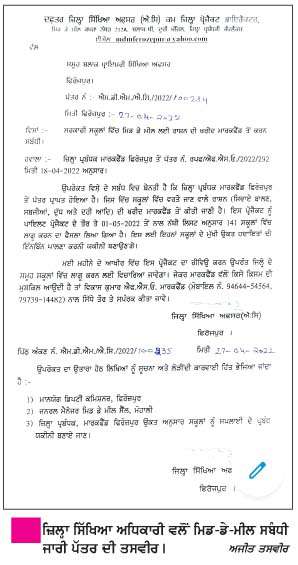 ਦਫਤਰ ਜ਼ਿਲ੍ਹਾ ਸਿੱਖਿਆ ਅਫਸਰ (ਐ:ਸਿ) ਕਮ ਜ਼ਿਲ੍ਹਾ ਪ੍ਰੋਜੈਕਟ ਡਾਇਰੈਕਟਰ,
ਮਿਡ ਡੇ ਮੀਲ
ਈਮੇਲ mdmferozepur@yahoo.com
ਵੱਲ
ਸਮੂਹ ਬਲਾਕ ਪ੍ਰਾਇਮਰੀ ਸਿੱਖਿਆ ਅਫਸਰ
ਫਿਰੋਜ਼ਪੁਰ।
ਪੱਤਰ ਨੰ :- ਐਮ.ਡੀ.ਐਮ./ਐ.ਸਿ/2022/100234
ਮਿਤੀ ਫਿਰੋਜ਼ਪੁਰ :- 27-04-2022
ਵਿਸ਼ਾ :- ਸਰਕਾਰੀ ਸਕੂਲਾਂ ਵਿੱਚ ਮਿਡ ਡੇ ਮੀਲ ਲਈ ਰਾਸ਼ਨ ਦੀ ਖਰੀਦ ਮਾਰਕਫੈੱਡ ਤੋਂ ਕਰਨ
ਸਬੰਧੀ।
ਹਵਾਲਾ :- ਜ਼ਿਲ੍ਹਾ ਪ੍ਰਬੰਧਕ ਮਾਰਕਫੈੱਡ ਫਿਰੋਜ਼ਪੁਰ ਦੇ ਪੱਤਰ ਨੰ. ਐਫ.ਐਸ.ਓ./2022/292
ਮਿਤੀ 18-04-2022 ਅਨੁਸਾਰ।
ਉਪਰੋਕਤ ਵਿਸ਼ੇ ਦੇ ਸਬੰਧ ਵਿਚ ਬੇਨਤੀ ਹੈ ਕਿ ਜ਼ਿਲ੍ਹਾ ਪ੍ਰਬੰਧਕ ਮਾਰਕਫੈੱਡ ਫਿਰੋਜ਼ਪੁਰ
ਤੋਂ ਪੱਤਰ ਪ੍ਰਾਪਤ ਹੋਇਆ ਹੈ। ਜਿਸ ਵਿੱਚ ਸਕੂਲਾਂ ਵਿੱਚ ਵਰਤੇ ਜਾਣ ਵਾਲੇ ਰਾਸ਼ਨ (ਸਿਵਾਏ ਬਾਲਣ,
ਸਬਜੀਆਂ, ਦੁੱਧ ਅਤੇ ਦਹੀਂ ਆਦਿ) ਦੀ ਖਰੀਦ ਮਾਰਕਫੈੱਡ ਤੋਂ ਕੀਤੀ ਜਾਣੀ ਹੈ। ਇਸ ਪ੍ਰੋਜੈਕਟ ਨੂੰ
ਪਾਇਲਟ ਪ੍ਰੋਜੈਕਟ ਦੇ ਤੌਰ ਤੇ 01-05-2022 ਤੋਂ ਨਾਲ ਨੱਥੀ ਲਿਸਟ ਅਨੁਸਾਰ 141 ਸਕੂਲਾਂ ਵਿੱਚ
ਲਾਗੂ ਕਰਨ ਦਾ ਫੈਸਲਾ ਲਿਆ ਗਿਆ ਹੈ। ਇਸ ਲਈ ਇਹਨਾਂ ਸਕੂਲਾਂ ਦੇ ਮੁੱਖੀ ਉਕਤ ਹਦਾਇਤਾਂ ਦੀ
ਇੰਨਬਿੰਨ ਪਾਲਣਾ ਕਰਨੀ ਯਕੀਨੀ ਬਣਾਉਣਗੇ।
ਮਈ ਮਹੀਨੇ ਦੇ ਆਖੀਰ ਵਿੱਚ ਇਸ ਪ੍ਰੋਜੈਕਟ ਦਾ ਰੀਵਿਊ ਕਰਨ ਉਪਰੰਤ ਜ਼ਿਲ੍ਹੇ ਦੇ
ਸਮੂਹ ਸਕੂਲਾਂ ਵਿੱਚ ਲਾਗੂ ਕਰਨ ਲਈ ਵਿਚਾਰਿਆ ਜਾਵੇਗਾ। ਜੇਕਰ ਮਾਰਕਫੈੱਡ ਵੱਲੋਂ ਕਿਸੇ ਕਿਸਮ ਦੀ
ਮੁਸ਼ਕਿਲ ਆਉਂਦੀ ਹੈ ਤਾਂ ਵਿਕਾਸ ਕੁਮਾਰ ਐਫ.ਐਸ.ਓ. ਮਾਰਕਫੈੱਡ (ਮੋਬਾਇਲ ਨੰ. 94644-54564,
79739-14482) ਨਾਲ ਸਿੱਧੇ ਤੌਰ ਤੇ ਸੰਪਰਕ ਕੀਤਾ ਜਾਵੇ।
ਜ਼ਿਲ੍ਹਾ ਸਿੱਖਿਆ ਅਫਸਰ(ਐ:ਸਿ)
ਫਿਰੋਜ਼ਪੁਰ ।
ਪਿੱਠ ਅੰਕਣ ਨੰ. ਐਮ.ਡੀ.ਐਮ./ਐ.ਸਿ/2022/100235 ਮਿਤੀ 27-04-2022
ਉਪਰੋਕਤ ਦਾ ਉਤਾਰਾ ਹੇਠ ਲਿਖਿਆਂ ਨੂੰ ਸੂਚਨਾ ਅਤੇ ਲੋੜੀਂਦੀ ਕਾਰਵਾਈ ਹਿੱਤ ਭੇਜਿਆ ਜਾਂਦਾ
ਹੈ :-
1) ਮਾਨਯੋਗ ਡਿਪਟੀ ਕਮਿਸ਼ਨਰ, ਫਿਰੋਜ਼ਪੁਰ
2) ਜਨਰਲ ਮੈਨੇਜਰ ਮਿਡ ਡੇ ਮੀਲ ਸੈੱਲ, ਮੋਹਾਲੀ
3) ਜ਼ਿਲ੍ਹਾ ਪ੍ਰਬੰਧਕ, ਮਾਰਕਫੈੱਡ ਫਿਰੋਜ਼ਪੁਰ ਉਕਤ ਅਨੁਸਾਰ ਸਕੂਲਾਂ ਨੂੰ ਸਪਲਾਈ ਦੇ ਪ੍ਰਬੰਧ
ਯਕੀਨੀ ਬਣਾਏ ਜਾਣ।
ਜ਼ਿਲ੍ਹਾ ਸਿੱਖਿਆ ਅਫ
ਫਿਰੋਜ਼ਪੁਰ ।
ਜ਼ਿਲ੍ਹਾ ਸਿੱਖਿਆ ਅਧਿਕਾਰੀ ਵਲੋਂ ਮਿਡ-ਡੇ-ਮੀਲ ਸਬੰਧੀ
ਜਾਰੀ ਪੱਤਰ ਦੀ ਤਸਵੀਰ। ਅਜੀਤ ਤਸਵੀਰ